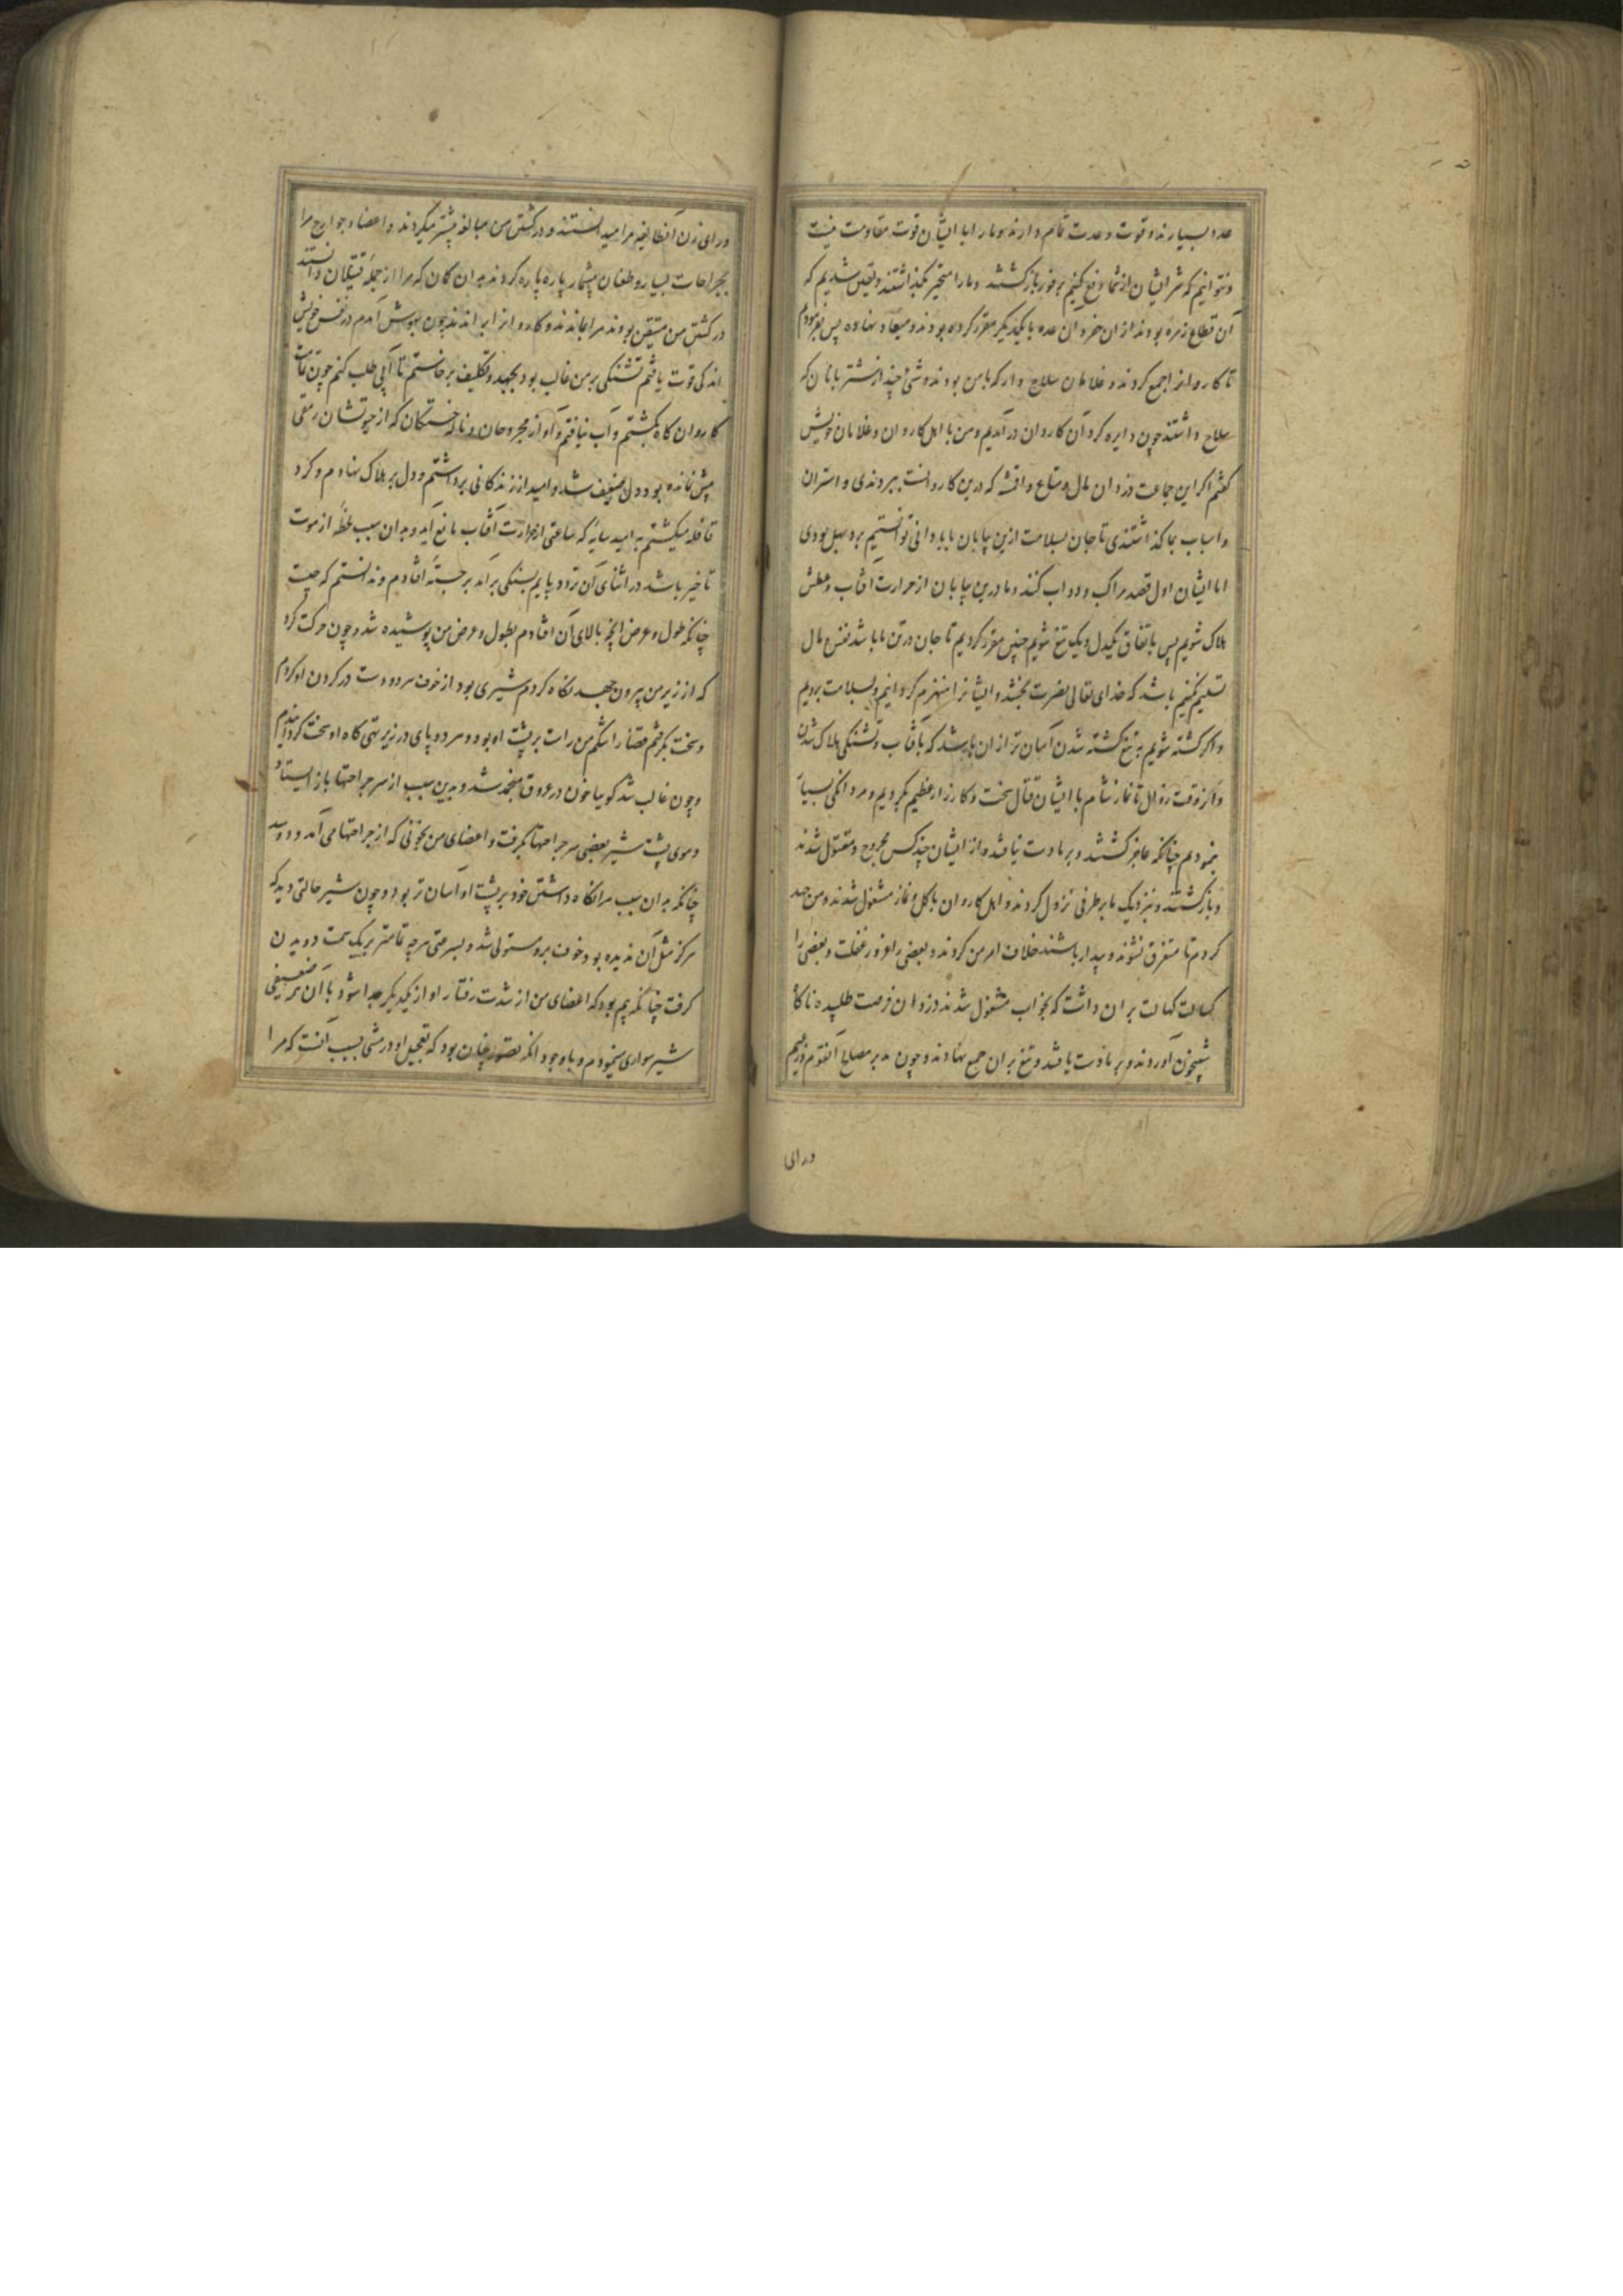 عدد بسیارند و قوت و عدت تمام دارند و ما را با ایشان قوت مقاومت نیست
و نتوانیم که شر ایشان از شما دفع کنیم بر فور بازگشتند و ما را متحیر بگذاشتند و یقین شدیم که
آن قطاع زمره بودند از ان خفرو ان عده با یکدیگر مقرر کرده بودند و میعاد نهاده پس بفرمودم
تا کاروانرا جمع کردند و غلامان سلاح دار که با من بودند و تنی چند از شتربانان که
سلاح داشتند چون دایره کرد آن کاروان درآمدیم و من با اهل کاروان و غلامان خویش
گفتم اگر این جماعت دزدان مال و متاع و اقمشه که درین کاروانست ببردندی و استران
و اسباب بما گذاشتندی تا جان بسلامت ازین بیابان بابادانی توانستیم برد سهل بودی
اما ایشان اول قصد مراکب و دواب کنند و ما درین بیابان از حرارت آفتاب و عطش
هلاک شویم پس باتفاق یکدل و یک تیغ شویم چنین مقرر کردیم تا جان در تن ما باشد نفس و مال
تسلیم نکنیم باشد که خدای تعالی نصرت بخشد و ایشانرا منهزم گردانیم و بسلامت برویم
و اگر کشته شویم به تیغ کشته شدن آسان تر از ان باشد که بآفتاب و تشنگی هلاک شدن
و از وقت زوال تا نماز شام با ایشان قتال سخت و کارزار عظیم بکردیم و مردانگی بسیار
بنمودیم چنانکه عاجز گشتند و بر ما دست نیافتند و از ایشان چند کس مجروح و مقتول شدند
و بازگشتند و نزدیک ما بر طرفی نزول کردند و اهل کاروان باکل و نماز مشغول شدند و من جهد
کردم تا متفرق نشوند و بیدار باشند خلاف امر من کردند و بعضی را غرور غفلت و بعضی را
کسالت بر ان داشت که بخواب مشغول شدند دزدان فرصت طلبیده ناگاه
شبیخون آوردند و بر ما دست یافتند و تیغ بران جمع نهادند و چون مدبر مصالح آنقوم من بودم
ورای
ورای زن آنطایفه مرا میدانستند و در کشتن من مبالغه بیشتر میکردند و اعضا و جوارح مرا
بجراحات بسیار و طعنان بیشمار پاره پاره کردند به ان گمان که مرا از جمله قتیلان دانستند
در کشتن من متیقن بودند مرا بماندند و کاروانرا براندند چون بهوش آمدم در نفس خویش
اندکی قوت یافتم تشنگی بر من غالب بود بجهد و تکلیف برخاستم تا آبی طلب کنم چون تمامت
کاروان گاه بگشتم و آب نیافتم و آواز مجروحان و ناله خستگان که از حیوتشان رمقی
بیش نمانده بود دل ضعیف شد و امید از زندگانی برداشتم و دل بر هلاک نهادم و گرد
قافله میگشتم به امید سایه که ساعتی از حرارت آفتاب مانع آید و بدان سبب لحظه از موت
تاخیر باشد در اثنای آن تردد پایم بسنگی برآمد بر جسته افتادم و ندانستم که چیست
چنانکه طول و عرض آنچه بالای آن افتادم بطول و عرض من پوشیده شد و چون حرکت کرد
که از زیر من بیرون جهد نگاه کردم شیری بود از خوف هر دو دست در گردن او کردم
و سخت بگرفتم قضا را شکم من راست بر پشت او بود و هر دو پای در زیر تهی گاه او سخت گردانیدم
و چون غالب شد گویا خون در عروق منجمد شد و بدین سبب از سر جراحتها باز ایستاد
و موی پشت شیر بعضی سر جراحتها بگرفت و اعضای من بخونی که از جراحتها می آمد دوسید
چنانکه به ان سبب مرا نگاه داشتن خود بر پشت او آسان تر بود و چون شیر حالتی دید که
هرگز مثل آن ندیده بود خوف برو مستولی شد و بسرعتی هرچه تمامتر بر یک سمت دویدن
گرفت چنانکه بیم بود که اعضای من از شدت رفتار او از یکدیگر جدا شود با آن ضعیفی
شیر سواری مینمودم و با وجود آنکه تصور چنان بود که تعجیل او در مشی بسبب آنست که مرا